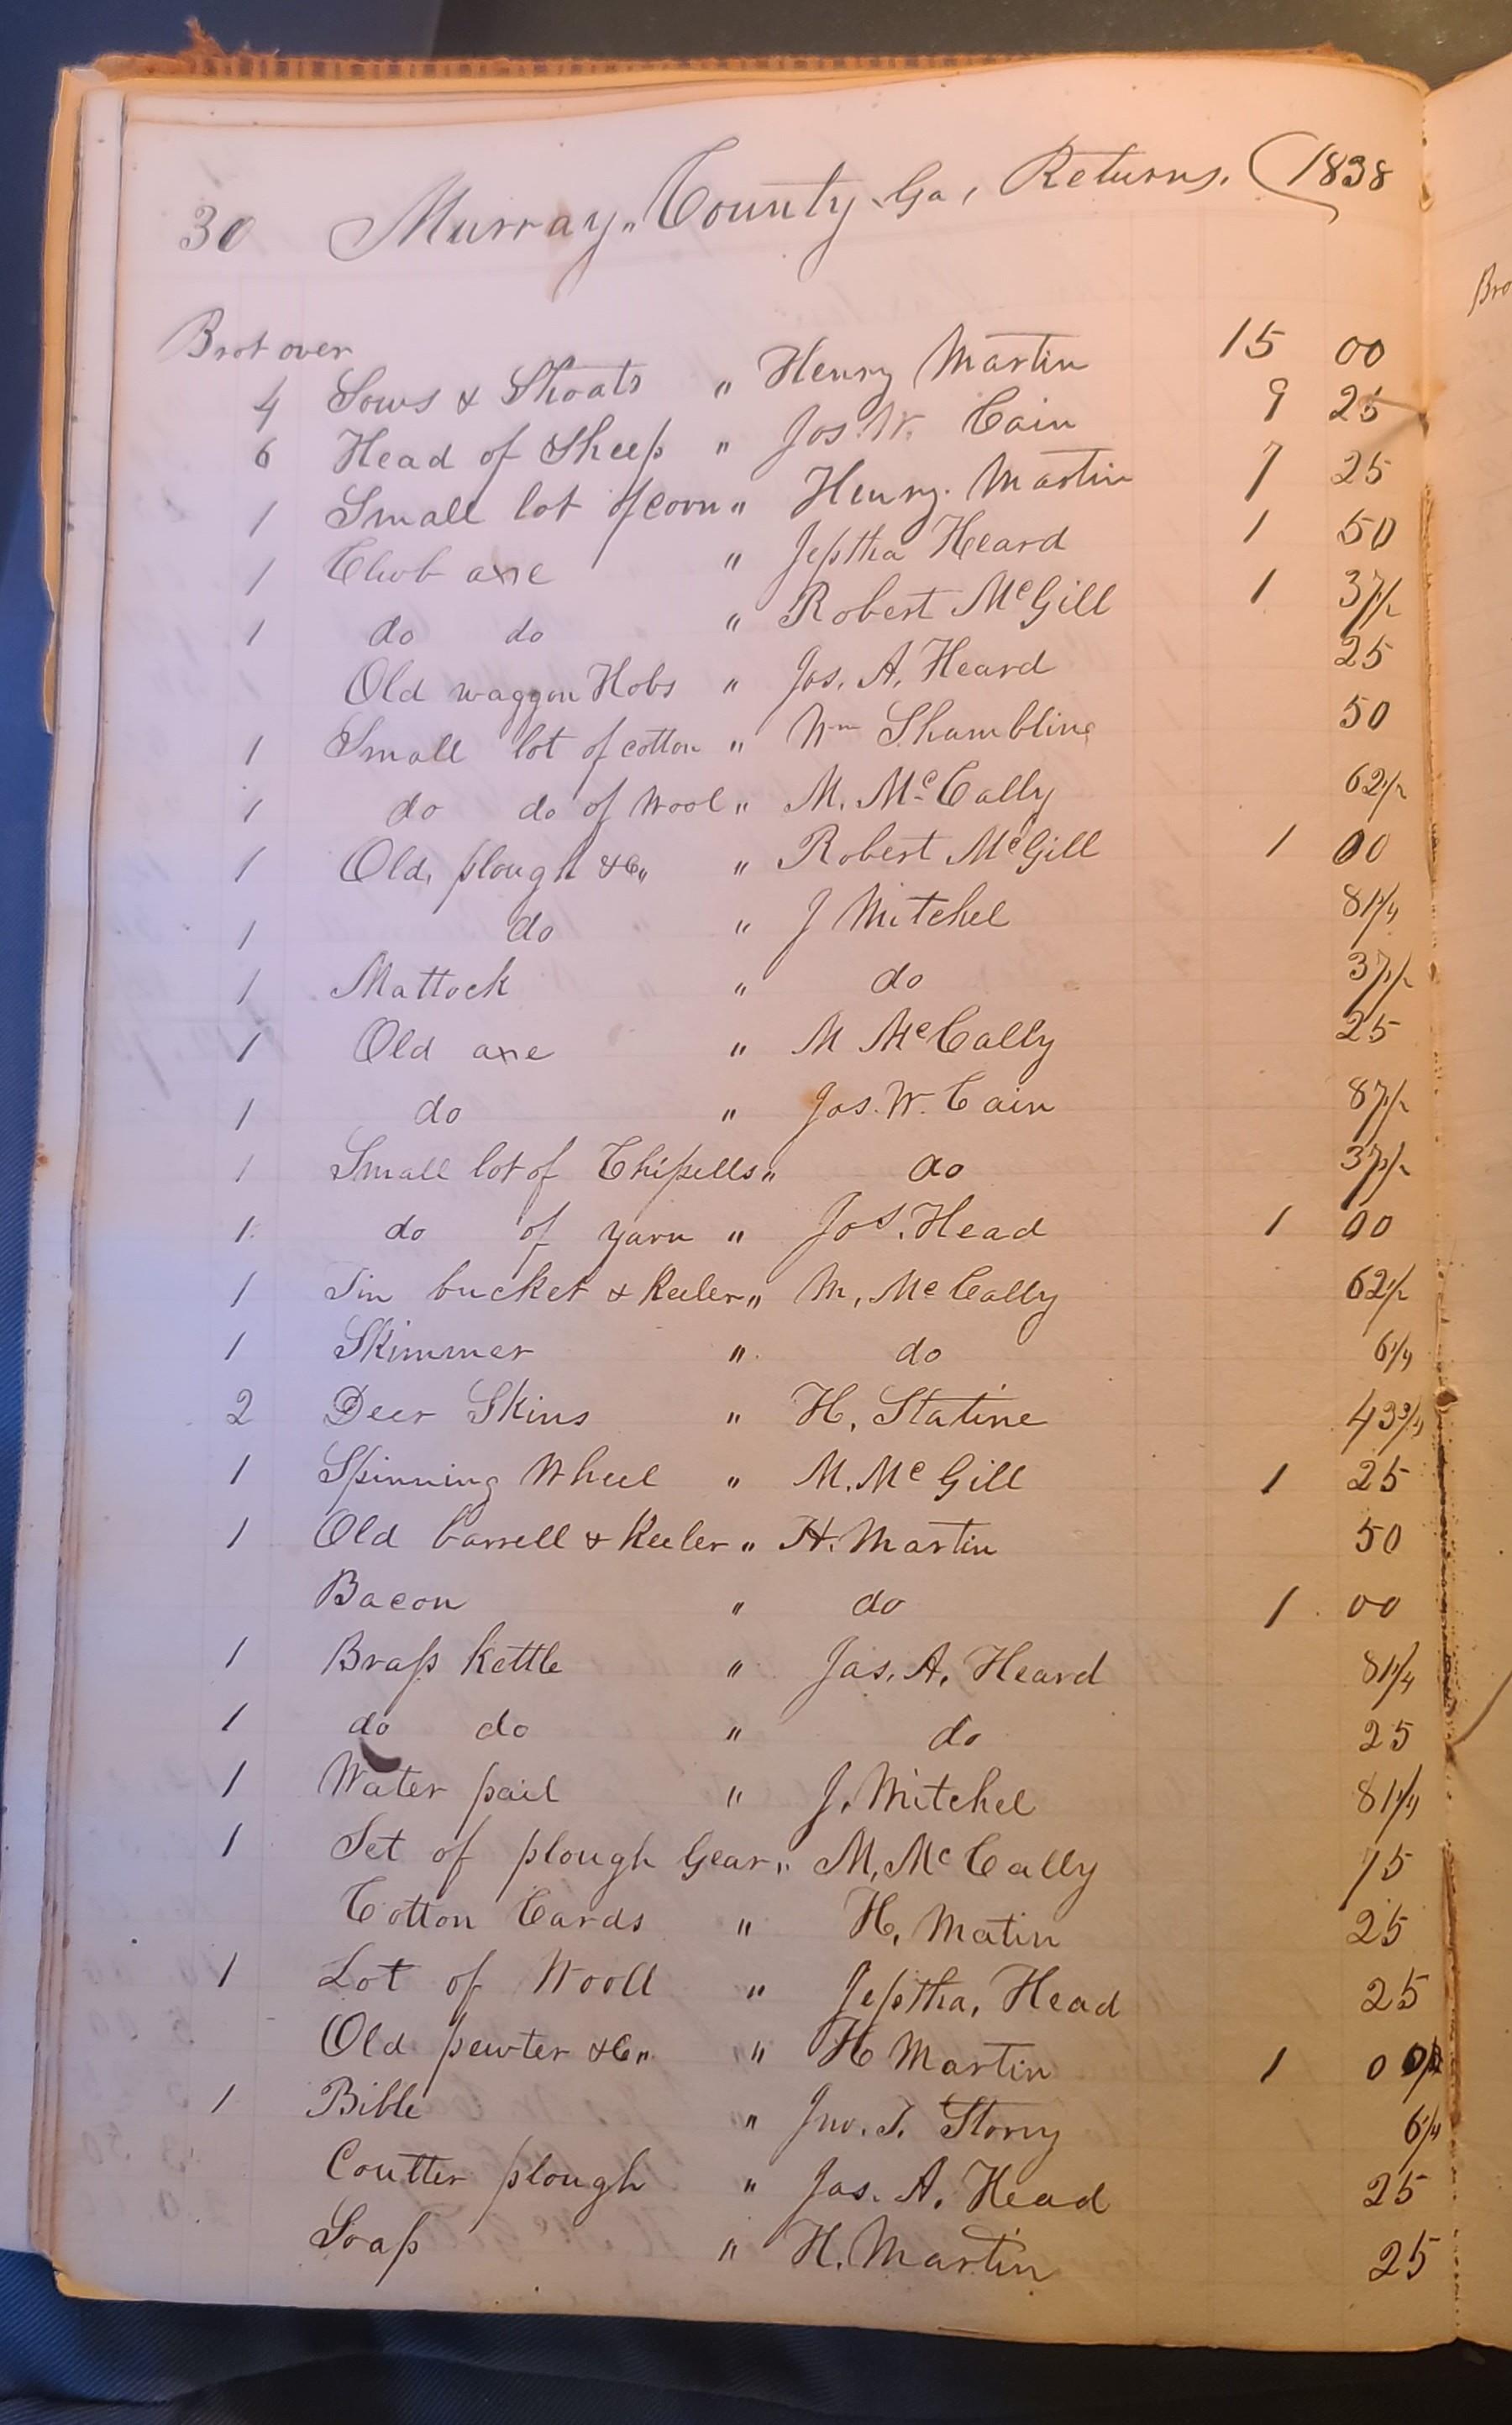 30 Murray County Ga, Returns. (1838
Brot over
4 Sows & Shoats " Henry Martin 15 00
6 Head of Sheep " Jas. W. Cain 9 25
1 Small lot of corn " Henry Martin 7 25
1 Club axe " Jeptha Heard 1 50
1 do do " Robert McGill 1 37 1/2
Old waggon Hobs " Jas. A. Heard 25
1 Small lot of cotton " Wm Shambline 50
1 do do of Wool " M. McCally 62 1/2
1 Old plough &C " Robert McGill 1 00
1 do " J Mitchel 81 1/4
1 Mattock " do 37 1/2
1 Old axe " M McCally 25
1 do " Jas. W. Cain 87 1/2
1 Small lot of Chipells " do 37 1/2
1 do of yarn " Jos. Head 1 00
1 Tin bucket & Keeler " M. McCally 62 1/2
1 Skimmer " do 6 1/4
2 Deer Skins " H. Statine 43 3/4
1 Spinning Wheel " M. McGill 1 25
1 Old barrell & Keeler " H. Martin 50
Bacon " do 1 00
1 Brass Kettle " Jas. A. Heard 81 1/4
1 do do " do 25
1 Water pail " J. Mitchel 81 1/4
1 Set of plough Gear " M. McCally 75
Cotton Cards " H. Matin 25
1 Lot of Wooll " Jeptha, Head 25
Old pewter &C " H Martin 1 00
1 Bible " Jno. T. Story 6 1/4
Coutter plough " Jas. A. Head 25
Soap " H. Martin 25
Bro